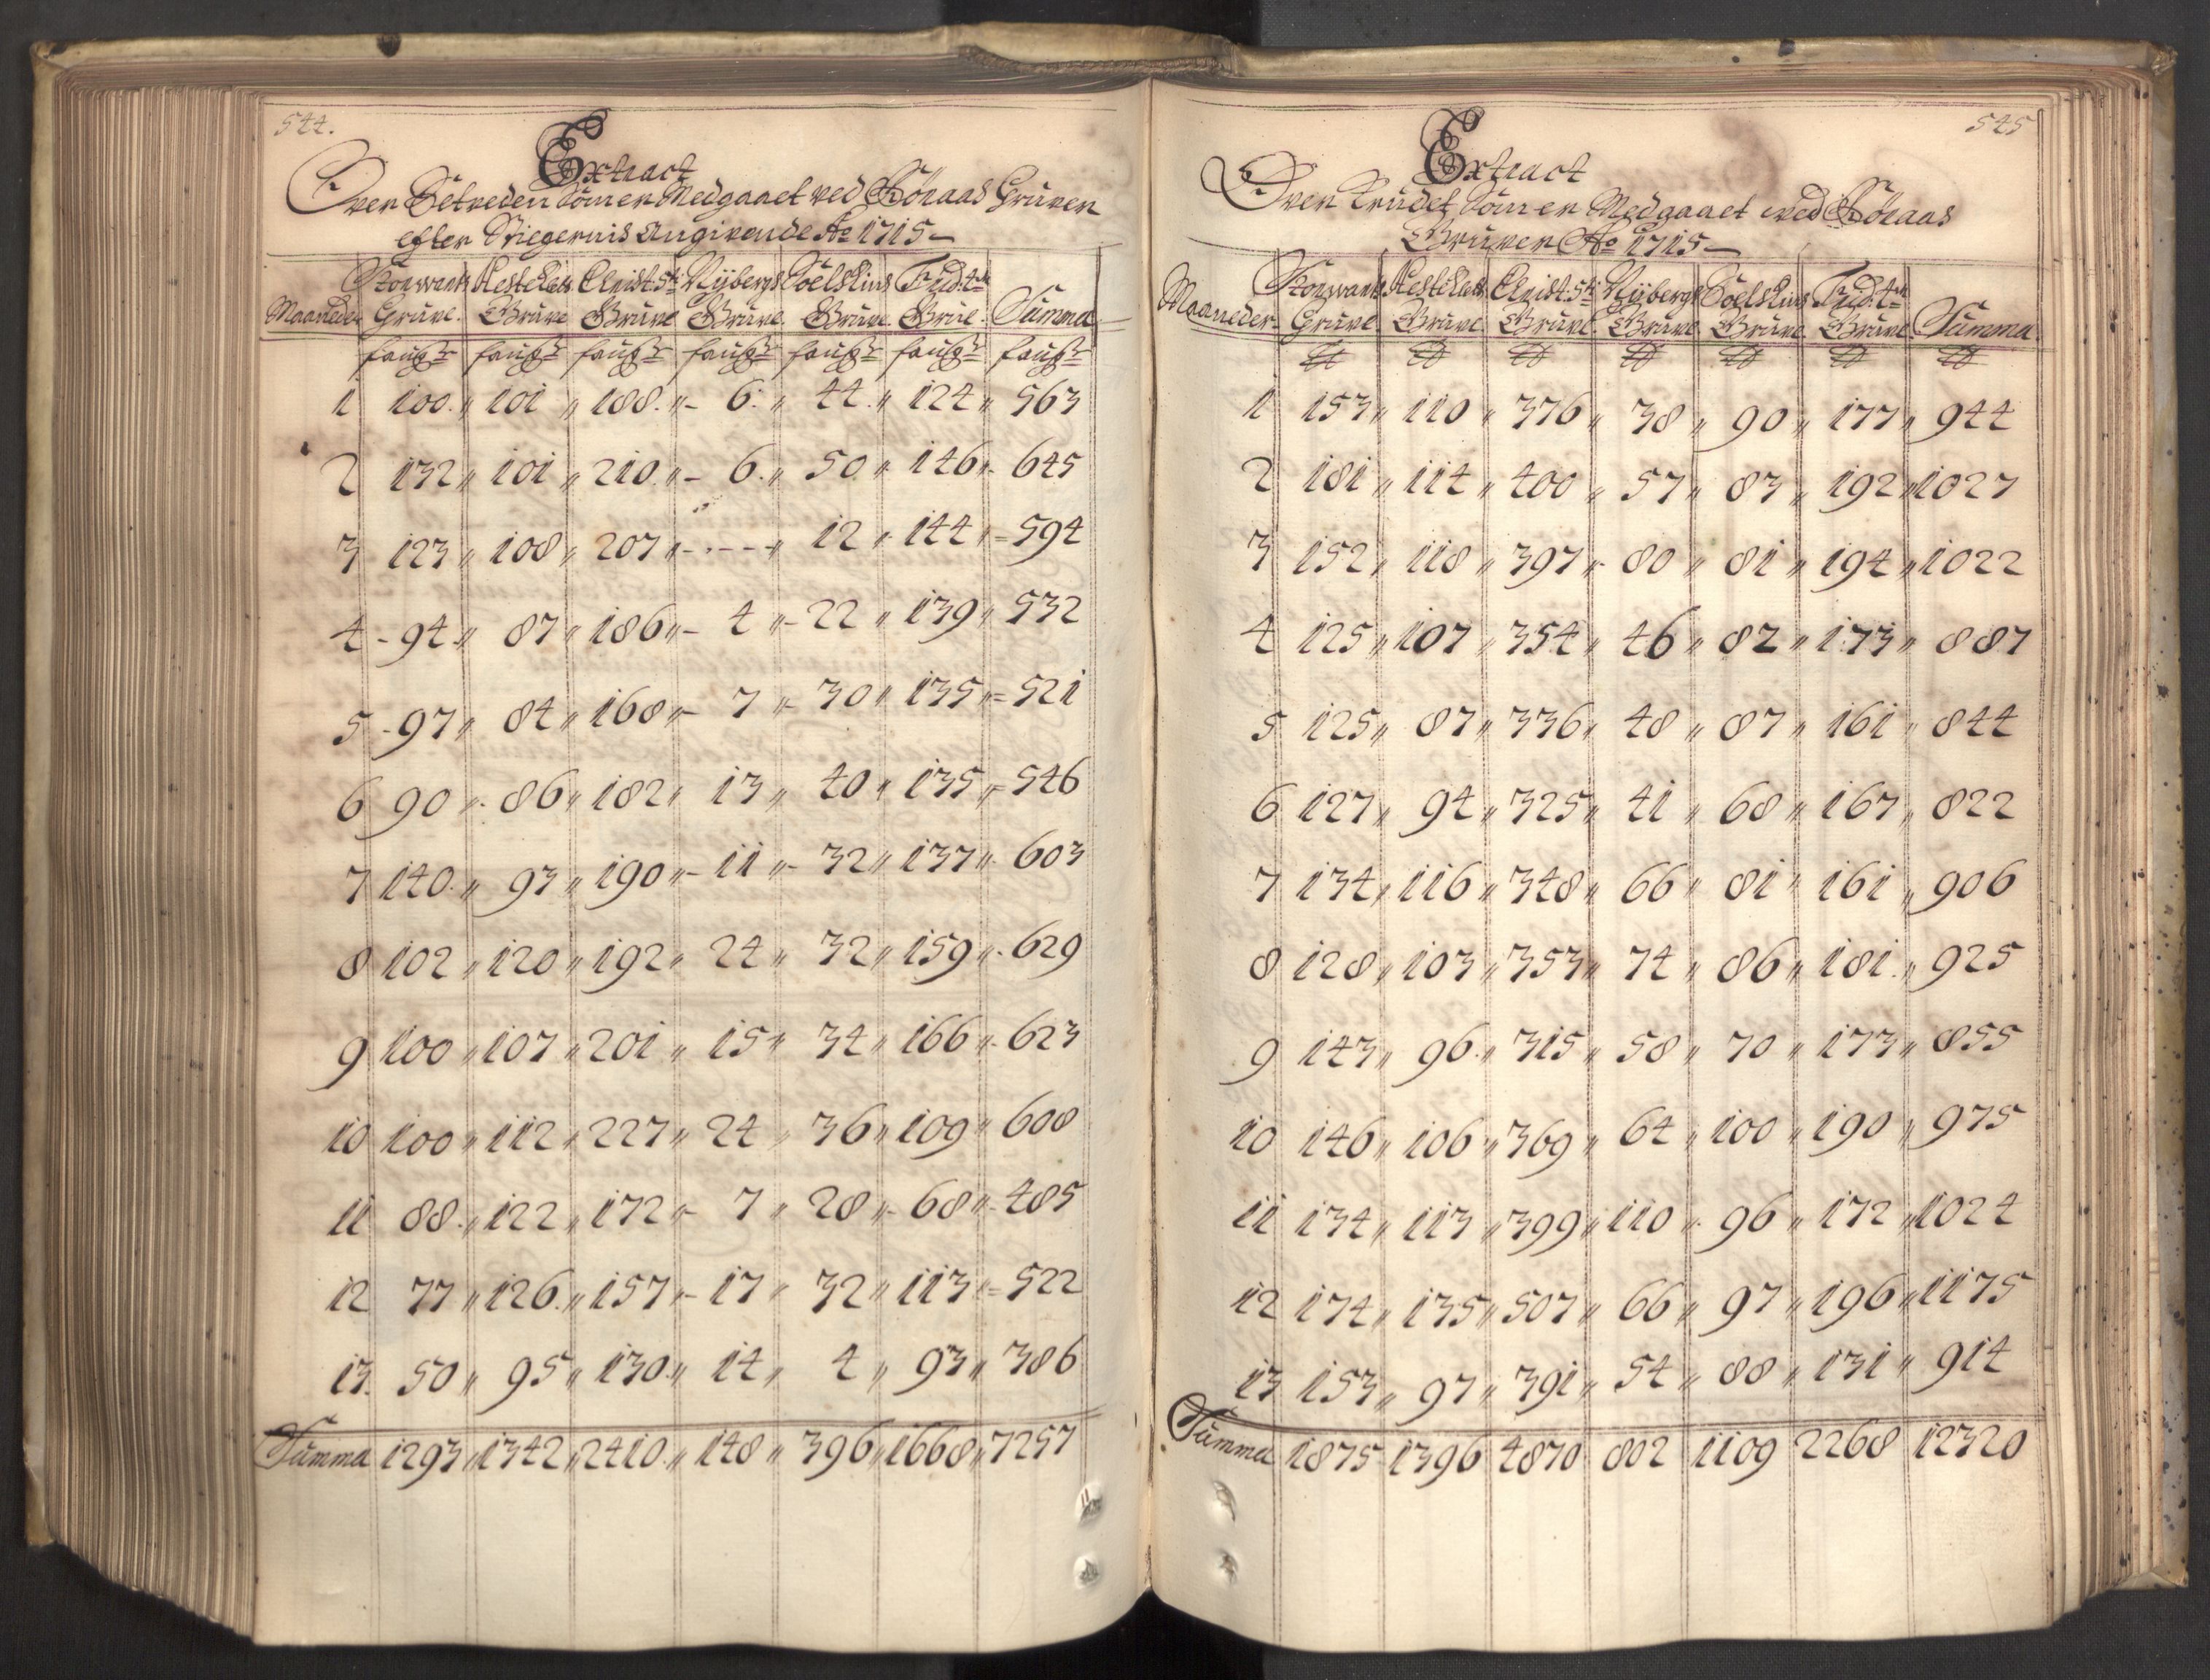 544.
Extract
Over Setveden Som er Medgaaet ved Röraas Gruver
efter Stiegernis Angivende Ao 1715
Storwarts Hestekletts Christ: 5ti Nÿbergs Soelskins Frid: 4ti
Maaneder Gruve. Gruve Gruve Gruve. Gruve Gruve. Summa
faufr faufr faufr faufr faufr faufr faufr
1 100. „ 101 „ 188. „ - 6. „ 44. „ 124 „ 563
2 132 „ 101 „ 210. „ - 6. „ 50 „ 146 „ 645
3 123 „ 108 „ 207 „ - - - - „ 12 „ 144 „ 594
4 - 94 „ 87 „ 186 „ - 4 „ - 22 „ 139 „ 532
5 - 97 „ 84 „ 168 „ - 7 „ - 30 „ 135 „ 521
6 90 „ 86 „ 182 „ 13 „ 40 „ 135 „ 546
7 140. „ 93 „ 190 „ - 11 „ - 32 „ 137 „ 603
8 102 „ 120 „ 192 „ 24 „ 32 „ 159 „ 629
9 100 „ 107 „ 201 „ 15 „ 34 „ 166 „ 623
10 100 „ 112 „ 227 „ 24 „ 36 „ 109 „ 608
11 88. „ 122 „ 172 „ - 7 „ 28 „ 68 „ 485
12 77 „ 126. „ 157 „ - 17 „ 32 „ 113 „ 522
13. 50 „ 95 „ 130. „ 14 „ 4 „ 93 „ 386
Summa 1293 „ 1342 „ 2410. „ 148 „ 396 „ 1668 „ 7257
545
Extract
Over Krudet Som er Medgaaet ved Röraas
Gruver Ao 1715
Storwarts Hestekletts Christ: 5ti Nÿbergs Soelskins Frid: 4ti
Maaneder Gruve Gruve Gruve Gruve Gruve Gruve Summa
℔ ℔ ℔ ℔ ℔ ℔ ℔
1 153 „ 110 „ 376 „ 38 „ 90 „ 177 „ 944
2 181 „ 114 „ 400 „ 57 „ 83 „ 192 „ 1027
3 152 „ 118 „ 397 „ 80 „ 81 „ 194 „ 1022
4 125 „ 107 „ 354 „ 46 „ 82 „ 173 „ 887
5 125 „ 87 „ 336 „ 48 „ 87 „ 161 „ 844
6 127 „ 94 „ 325 „ 41 „ 68 „ 167 „ 822
7 134 „ 116 „ 348 „ 66 „ 81 „ 161 „ 906
8 128 „ 103 „ 353 „ 74 „ 86 „ 181. „ 925
9 143 „ 96. „ 315 „ 58 „ 70 „ 173 „ 855
10 146 „ 106 „ 369 „ 64 „ 100 „ 190 „ 975
11 134 „ 113 „ 399 „ 110 „ 96 „ 172 „ 1024
12 174 „ 135 „ 507 „ 66 „ 97 „ 196 „ 1175
13 153 „ 97 „ 391 „ 54 „ 88 „ 131 „ 914
Summa 1875 1396 4870 802 1109 2268 12320